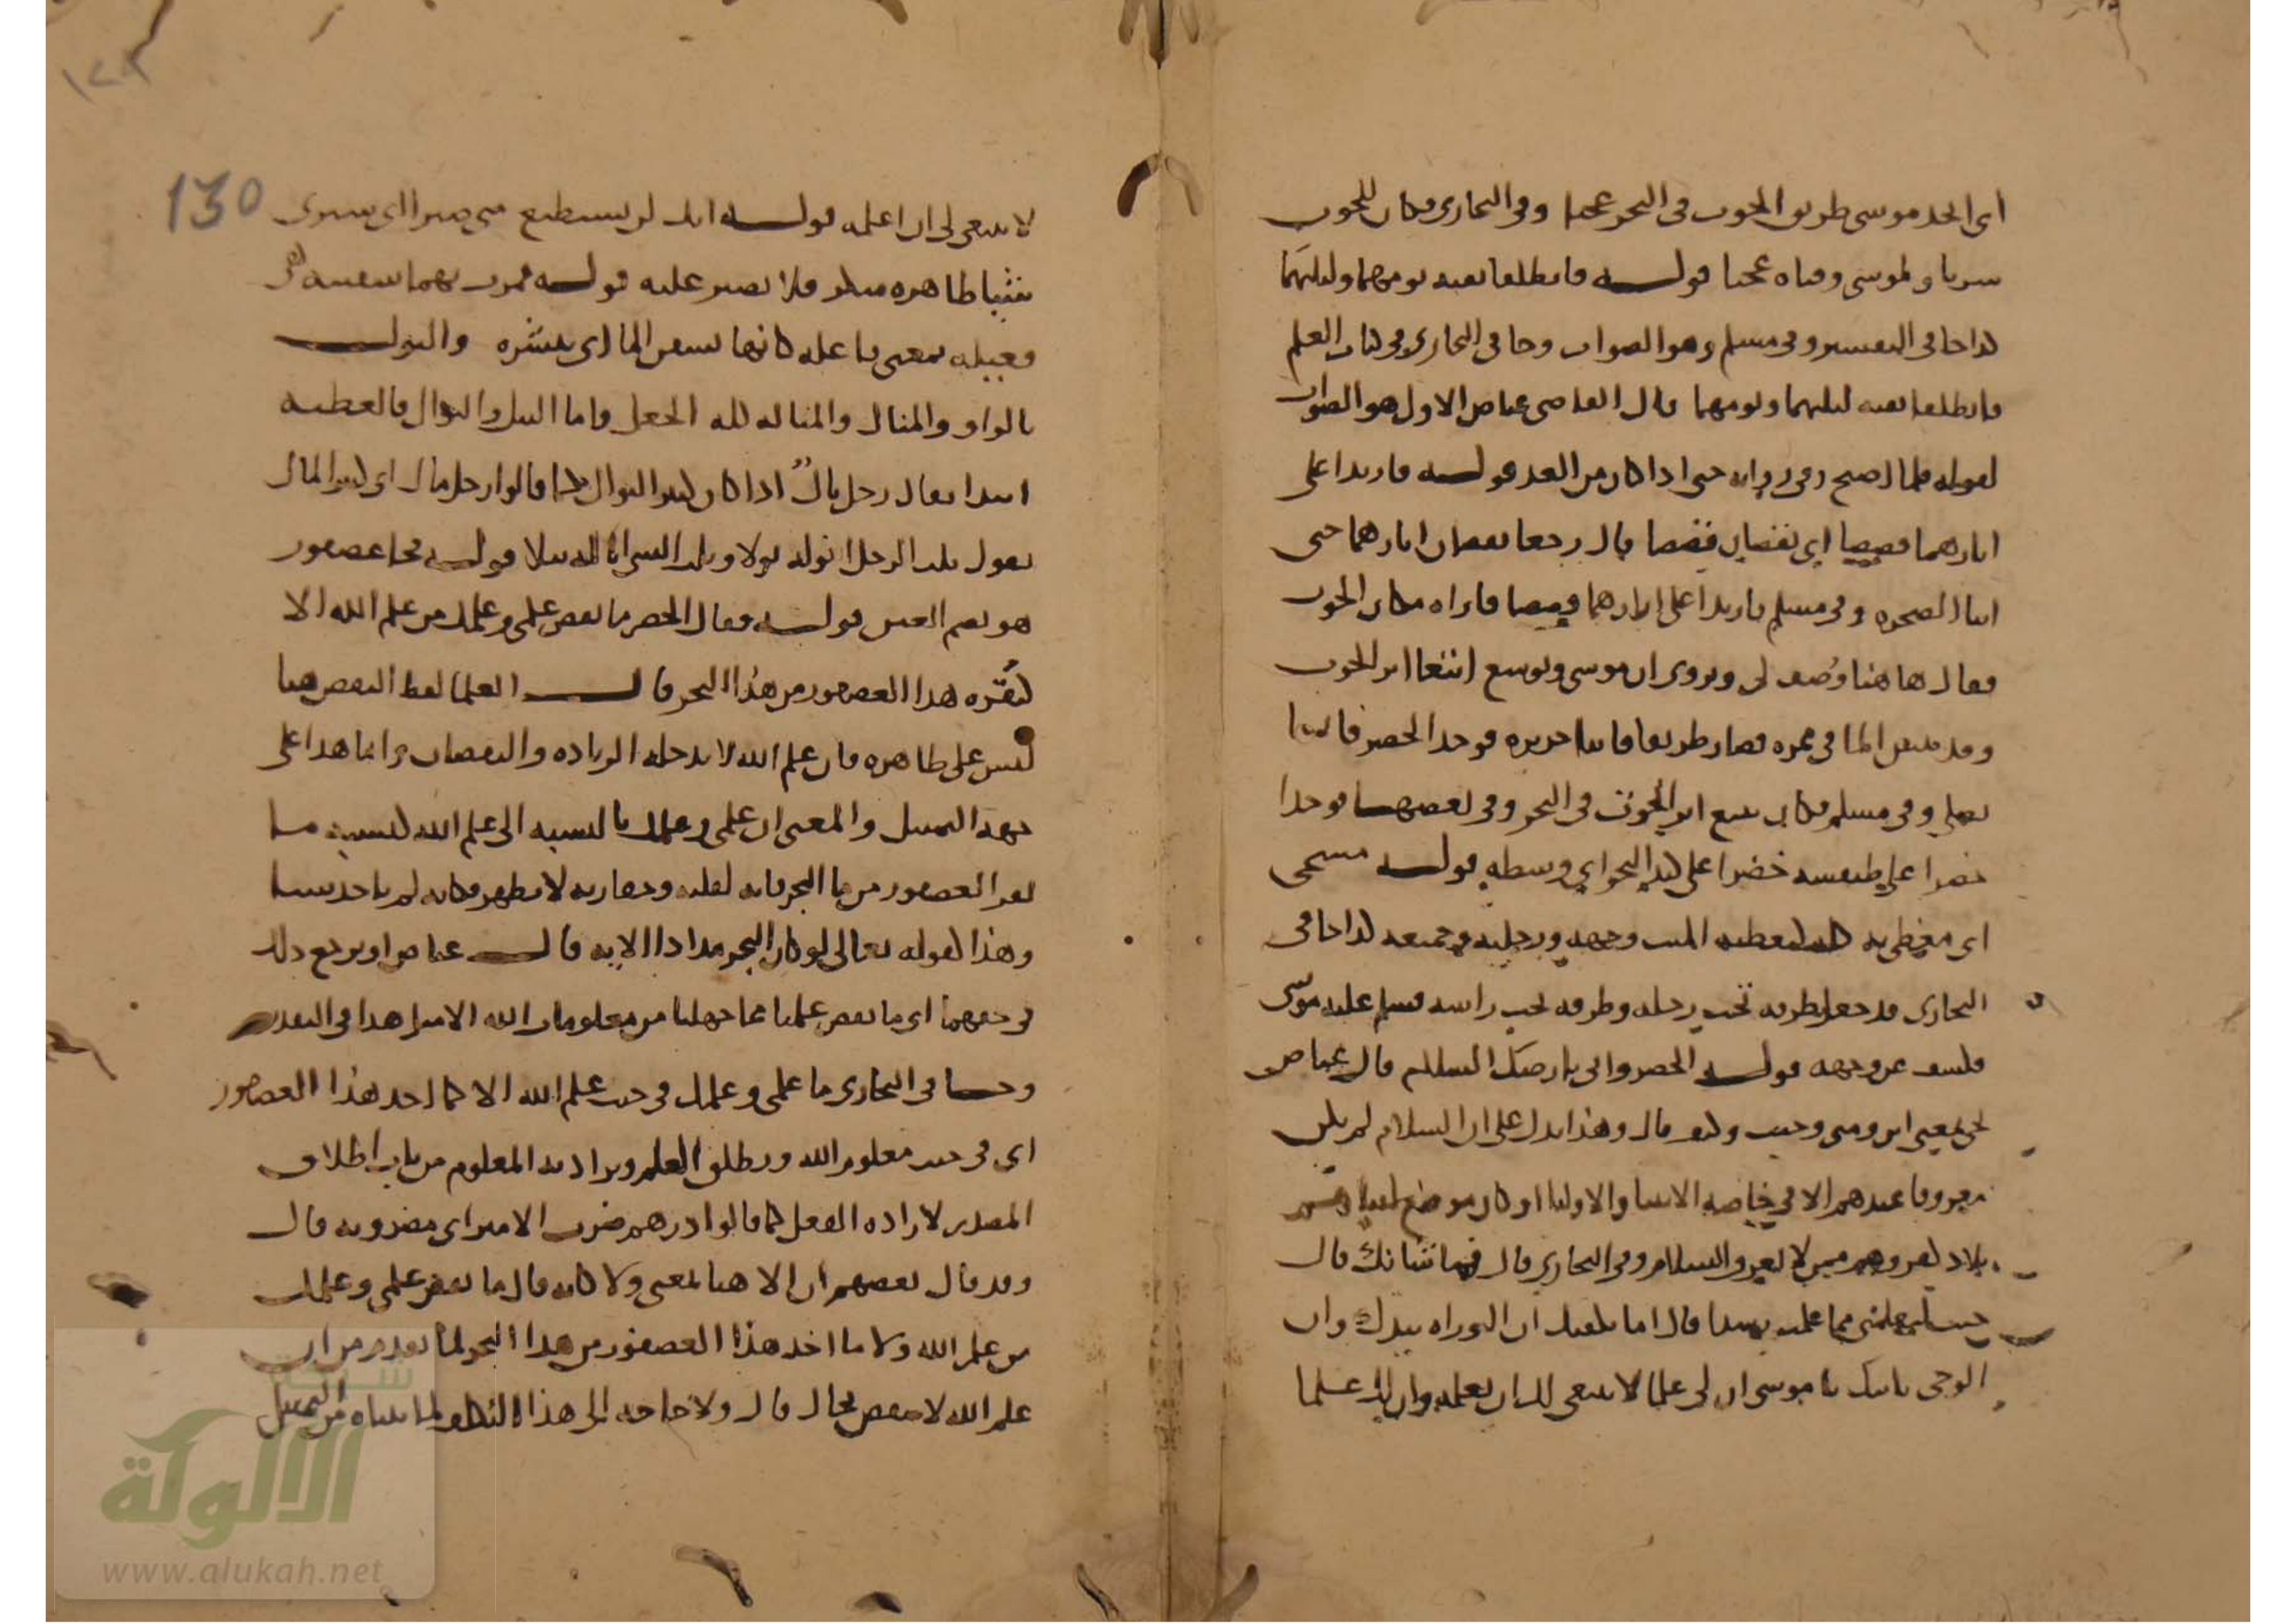 اى اتخذ موسى طريق الحوت فى البحر عجبا وفى البخارى فكان للحوت
سربا ولموسى وفتاه عجبا قوله فانطلقا بقيه يومهما وليلتهما
كذا جا فى التفسير وفى مسلم وهو الصواب وجا فى البخارى فى كتاب العلم
فانطلقا بقيه ليلتهما ويومهما قال القاضى عياض الاول هو الصواب
لقوله فلما اصبح وفى روايه حتى اذا كان من الغد قوله فارتدا على
اثارهما قصصا اى يقصان قصصا قال رجعا يقصان اثارهما حتى
اتيا الصخره وفى مسلم فارتدا على اثارهما قصصا فاراه مكان الحوت
فقال هاهنا وُصف لى ويروى ان موسى ويوشع اتبعا اثر الحوت
وقد يبس الما فى ممره فصار طريقا فاتيا جزيره فوجد الخضر قايما
يصلى وفى مسلم فكان يتبع اثر الحوت فى البحر وفى بعضها فوجدا
خضرا على طنفسه خضرا على كبد البحر اى وسطه قوله مسجى
اى مغطى به كله كتغطيه الميت وجهه ورجليه وجميعه كذا جا فى
البخارى قد جعل طرفه تحت رجله وطرفه تحت راسه فسلم عليه موسى
فكشف عن وجهه قوله الخضر وانى بارضك السلام قال عياض
انى بمعنى اين ومتى وحيث وكيف قال وهذا يدل على ان السلام لم يكن
معروفا عندهم الا فى خاصه الانبيا والاوليا او كان موضع لقياه
بلاد كفر وهم ممن لا يعرف السلام وفى البخارى قال فما شانك قال
جيت لتعلمنى مما علمت رشدا قال اما يكفيك ان التوراه بيدك وان
الوحى ياتيك يا موسى ان لى علما لا ينبغى لك ان تعلمه وان لك علما
130
لا ينبغى لى ان اعلمه قوله انك لن تستطيع معى صبرا اى سترى
شيا ظاهره منكر فلا تصبر عليه قوله فمرت بهما سفينه هى
فعيله بمعنى فاعله كانها تسفن الما اى تقشره والنول
بالواو والمنال والمناله كله الجعل واما النيل والنوال فالعطيه
ابتدا يقال رجل نالٌ اذا كان كثير النوال كما قالوا رجل مال اى كثير المال
يقول نلت الرجل انوله نولا ونلت الشى اناله نيلا قوله فجا عصفور
هو بضم العين قوله فقال الخضر ما نقص علمى وعلمك من علم الله الا
كنقره هذا العصفور من هذا البحر قال العلما لفظ النقص هنا
ليس على ظاهره فان علم الله لا يدخله الزياده والنقصان وانما هذا على
جهه التمثيل والمعنى ان علمى وعلمك بالنسبه الى علم الله كنسبه ما
نقر العصفور من ما البحر فانه لقلته وحقارته لا يظهر فكانه لم ياخذ شيا
وهذا كقوله تعالى لو كان البحر مدادا الايه قال عياض او يرجع ذلك
فى حقهما اى ما نقص علمنا مما جهلنا من معلومات الله الا مثل هذا فى التقدير
وجا فى البخارى ما علمى وعلمك فى جنب علم الله الا كما اخذ هذا العصفور
اى فى جنب معلوم الله ويطلق العلم ويراد به المعلوم من باب اطلاق
المصدر لاراده المفعول كما قالوا درهم ضرب الامير اى مضروبه قال
وقد قال بعضهم ان الا هنا بمعنى ولا كانه قال ما نقص علمى وعلمك
من علم الله ولا ما اخذ هذا العصفور من هذا البحر لما تقدم من ان
علم الله لا ينقص بحال قال ولا حاجه الى هذا التكلف لما بيناه من التمثيل
شبكة
الألوكة
www.alukah.net